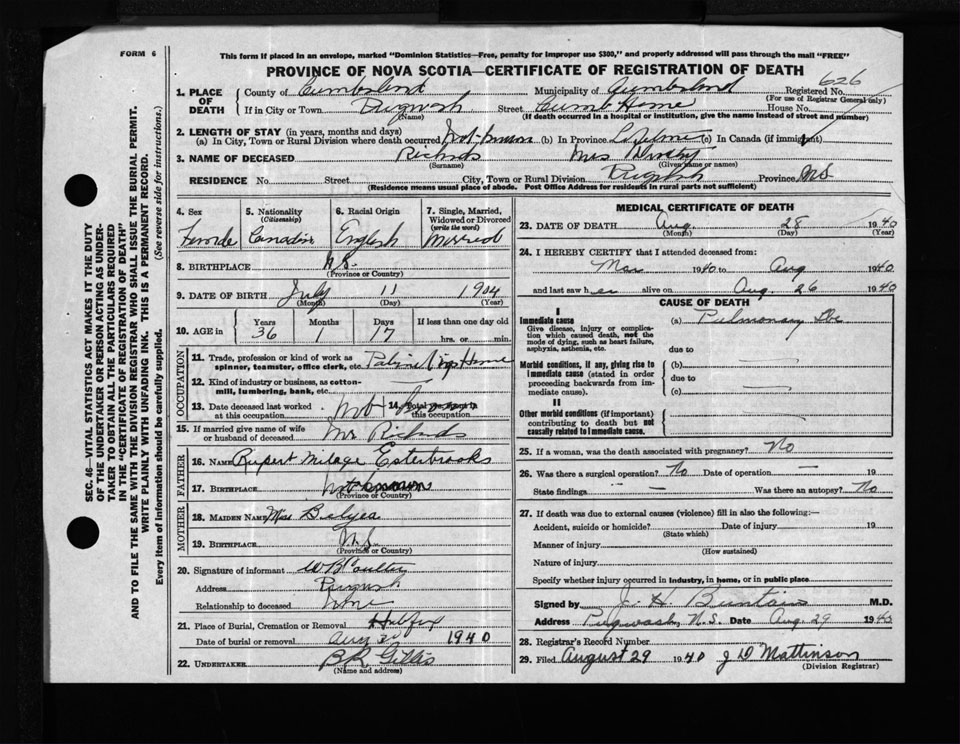 FORM 6
This form if placed in an envelope, marked "Dominion Statistics—Free, penalty for improper use $300," and properly addressed will pass through the mail "FREE"
PROVINCE OF NOVA SCOTIA—CERTIFICATE OF REGISTRATION OF DEATH
626
1. PLACE OF DEATH
County of Cumberland Municipality of Cumberland Registered No.
(For use of Registrar General only)
If in City or Town Pugwash Street Cumb Home House No.
(Name) (If death occurred in a hospital or institution, give the name instead of street and number)
2. LENGTH OF STAY (in years, months and days)
(a) In City, Town or Rural Division where death occurred Not known (b) In Province (c) In Canada (if immigrant)
3. NAME OF DECEASED Richards Mrs
(Surname) (Given name or names)
RESIDENCE No. Street City, Town or Rural Division Pugwash Province NS
(Residence means usual place of abode. Post Office Address for residents in rural parts not sufficient)
4. Sex Female
5. Nationality (Citizenship) Canadian
6. Racial Origin English
7. Single, Married, Widowed or Divorced (write the word) Married
8. BIRTHPLACE N.S.
(Province or Country)
9. DATE OF BIRTH July 11 1904
(Month) (Day) (Year)
10. AGE in Years 36 Months 1 Days 17 If less than one day old hrs. or min.
OCCUPATION
11. Trade, profession or kind of work as spinner, teamster, office clerk, etc. Home
12. Kind of industry or business, as cotton-mill, lumbering, bank, etc. —
13. Date deceased last worked at this occupation Not 14. Total years spent in this occupation
15. If married give name of wife or husband of deceased Mr. Richards
FATHER
16. Name Rupert Milage Esterbrooks
17. Birthplace Not known
(Province or Country)
MOTHER
18. Maiden Name Miss Belyea
19. Birthplace N.S.
(Province or Country)
20. Signature of informant W B
Address Pugwash
Relationship to deceased None
21. Place of Burial, Cremation or Removal Halifax
Date of burial or removal Aug 30 1940
22. UNDERTAKER B R Gillis
(Name and address)
MEDICAL CERTIFICATE OF DEATH
23. DATE OF DEATH Aug. 28 1940
(Month) (Day) (Year)
24. I HEREBY CERTIFY that I attended deceased from:
Mar 1940 to Aug 1940
and last saw her alive on Aug. 26 1940
CAUSE OF DEATH
I
Immediate cause (a) Pulmonary Tbc
Give disease, injury or complication which caused death, not the mode of dying, such as heart failure, asphyxia, asthenia, etc.
due to
Morbid conditions, if any, giving rise to immediate cause (stated in order proceeding backwards from immediate cause).
(b)
due to
(c)
II
Other morbid conditions (if important) contributing to death but not causally related to immediate cause.
25. If a woman, was the death associated with pregnancy? No
26. Was there a surgical operation? No Date of operation — 19
State findings — Was there an autopsy? No
27. If death was due to external causes (violence) fill in also the following:—
Accident, suicide or homicide? Date of injury 19
(State which)
Manner of injury
(How sustained)
Nature of injury
Specify whether injury occurred in industry, in home, or in public place
Signed by J. H. Buntain M.D.
Address Pugwash, N.S. Date Aug. 29 1940
28. Registrar's Record Number
29. Filed August 29 1940 J D Mattinson
(Division Registrar)
SEC. 46—VITAL STATISTICS ACT MAKES IT THE DUTY
OF THE UNDERTAKER OR PERSON ACTING AS UNDER-
TAKER TO OBTAIN ALL THE PARTICULARS REQUIRED
IN THE "CERTIFICATE OF REGISTRATION OF DEATH"
AND TO FILE THE SAME WITH THE DIVISION REGISTRAR WHO SHALL ISSUE THE BURIAL PERMIT.
WRITE PLAINLY WITH UNFADING INK. THIS IS A PERMANENT RECORD.
Every item of information should be carefully supplied. (See reverse side for instructions.)